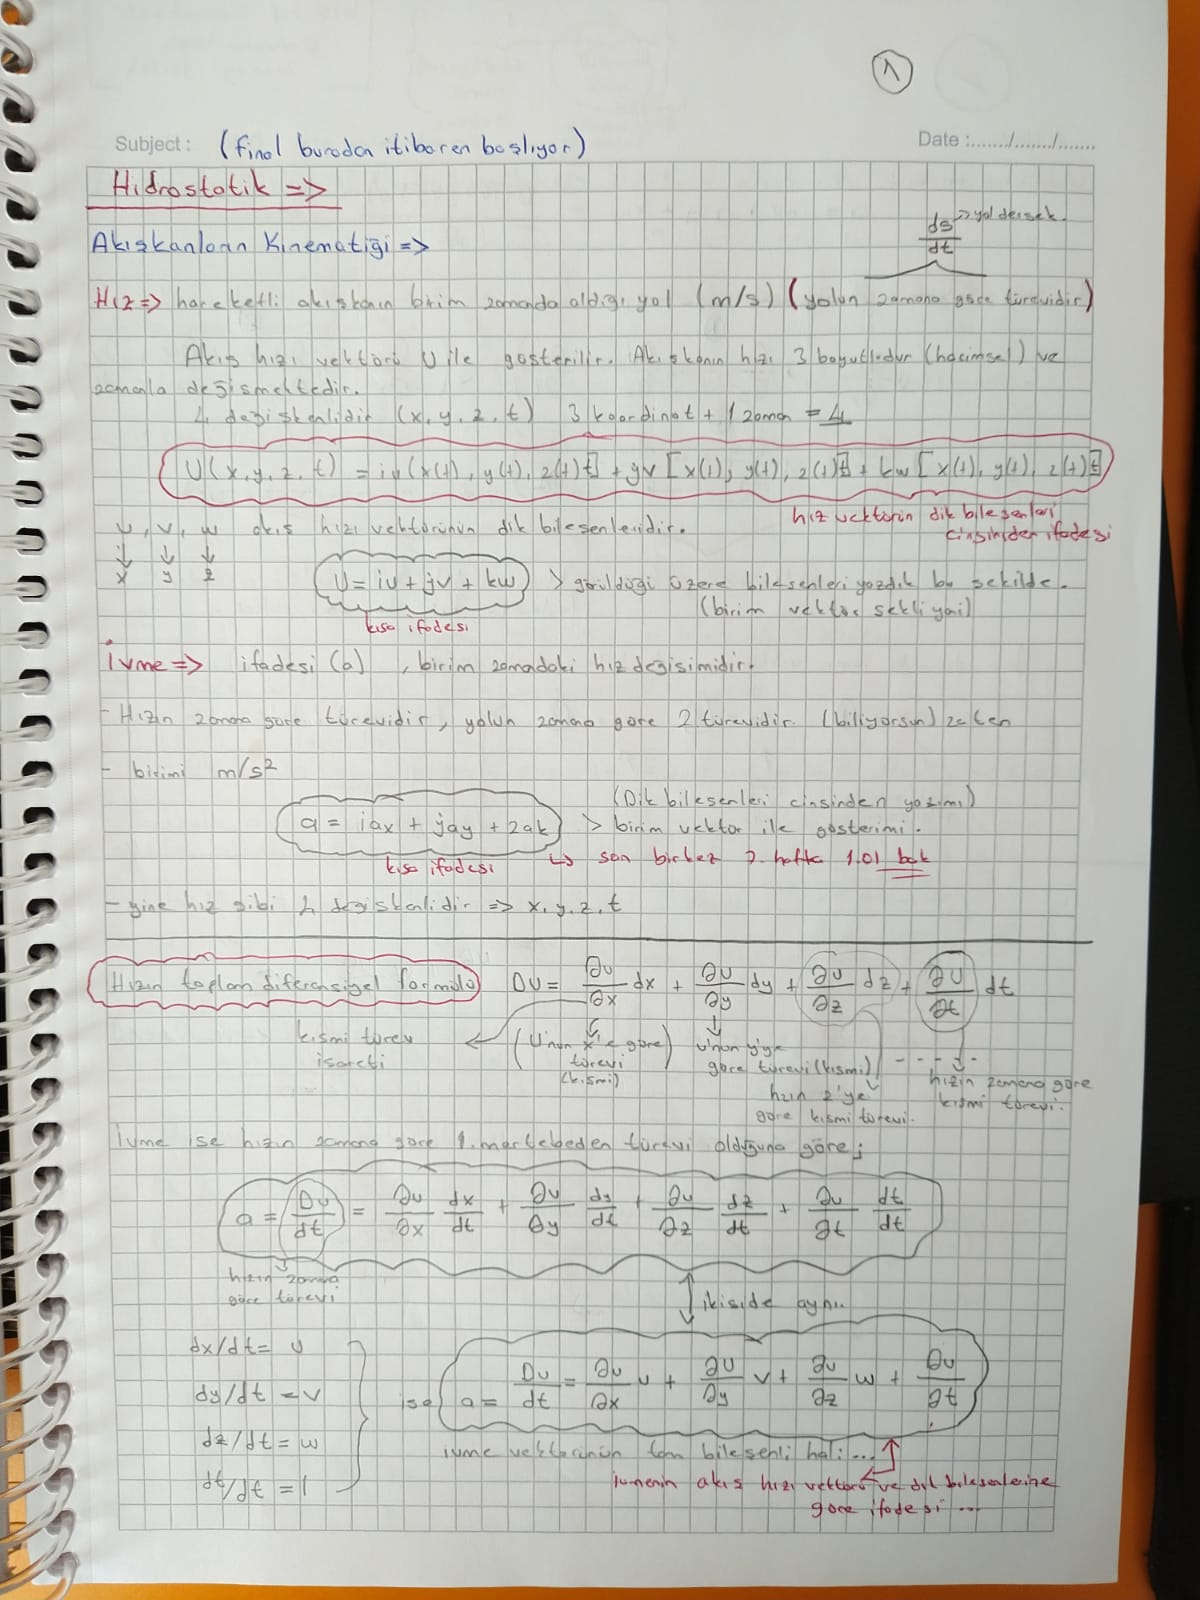 1
Subject : (final buradan itibaren başlıyor) Date :......./......./.......
Hidrostatik =>
ds/dt -> yol dersek.
Akışkanların Kinematiği =>
Hız => hareketli akışkanın birim zamanda aldığı yol (m/s) (yolun zamana göre türevidir)
Akış hızı vektörü U ile gösterilir. Akışkanın hızı 3 boyutludur (hacimsel) ve
zamanla değişmektedir.
4 değişkenlidir (x, y, z, t) 3 koordinat + 1 zaman = 4
U(x, y, z, t) = iu(x(t), y(t), z(t) t] + yv [x(t), y(t), z(t) t] + kw [x(t), y(t), z(t) t]
hız vektörün dik bileşenleri
cinsinden ifadesi
u, v, w akış hızı vektörünün dik bileşenleridir.
↓ ↓ ↓
x y z
U = iu + jv + kw > görüldüğü üzere bileşenleri yazdık bu şekilde.
(birim vektör şekli yani)
kısa ifadesi
İvme => ifadesi (a), birim zamandaki hız değişimidir.
- Hızın zamana göre türevidir, yolun zamana göre 2 türevidir. (biliyorsun) zaten
- birimi m/s²
(Dik bileşenleri cinsinden yazımı)
a = iax + jay + zak > birim vektör ile gösterimi.
kısa ifadesi ↳ son birkez 2. hafta 1.01 bak
- yine hız gibi 4 değişkenlidir => x, y, z, t
Hızın toplam diferensiyel formülü DU = ∂u/∂x dx + ∂u/∂y dy + ∂u/∂z dz + ∂u/∂t dt
kısmi türev
işareti
(U'nun x'e göre
türevi
(kısmi)
U'nun y'ye
göre türevi (kısmi)
hızın z'ye
göre kısmi türevi.
hızın zamana göre
kısmi türevi.
İvme ise hızın zamana göre 1. mertebeden türevi olduğuna göre;
a = Du/dt = ∂u/∂x dx/dt + ∂u/∂y dy/dt + ∂u/∂z dz/dt + ∂u/∂t dt/dt
hızın zamana
göre türevi
ikiside aynı.
dx/dt = u
dy/dt = v
dz/dt = w
dt/dt = 1
ise a = Du/dt = ∂u/∂x u + ∂u/∂y v + ∂u/∂z w + ∂u/∂t
ivme vektörünün tam bileşenli hali...
ivmenin akış hızı vektörü ve dik bileşenlerine
göre ifadesi ...